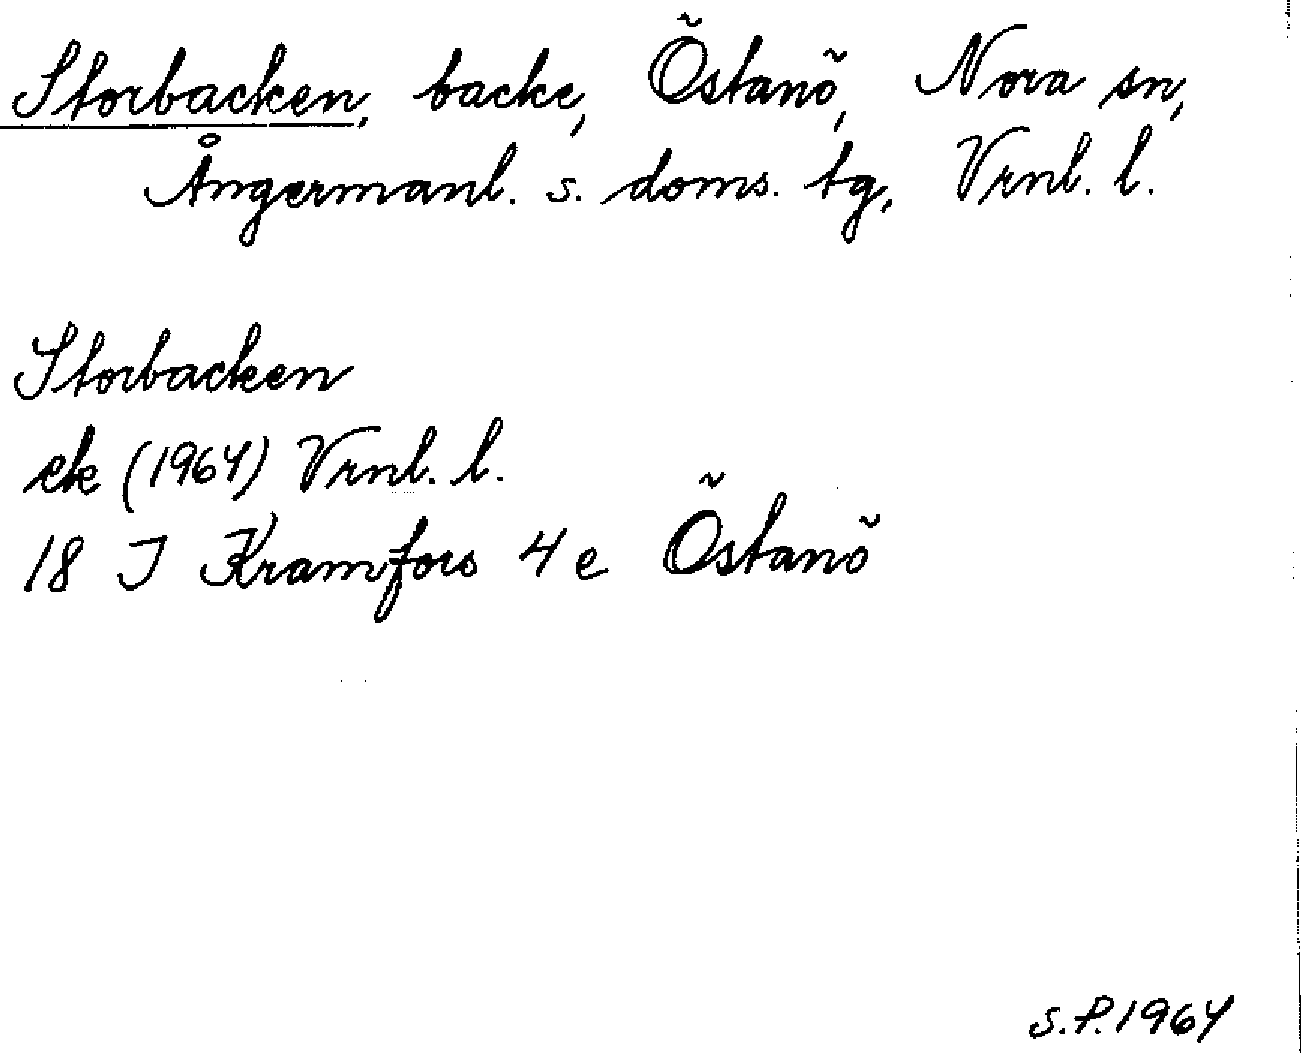 Storbacken, backe, Östanö, Nora sn,
Ångermanl. s. doms. tg, Vrnl. l.
Storbacken
ek (1964) Vrnl. l.
18 I Kramfors 4 e Östanö
S.P. 1964